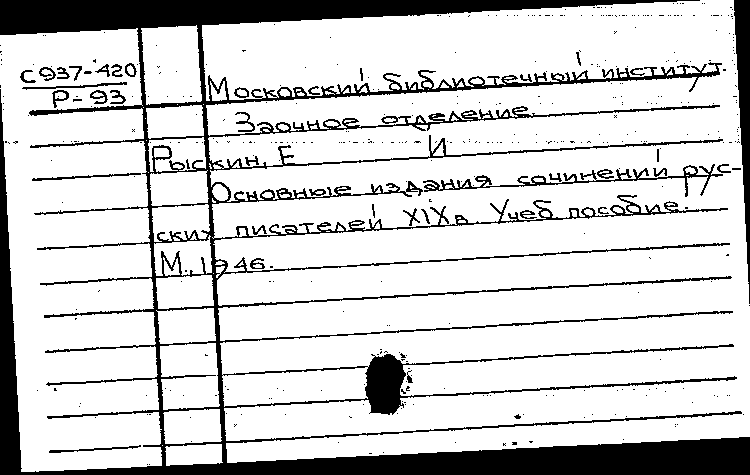 С937-420
Р-93
Московский библиотечный институт.
Заочное отделение.
Рыскин, Е И
Основные издания сочинений рус-
ских писателей XIX в. Учеб пособие.
М., 1946.